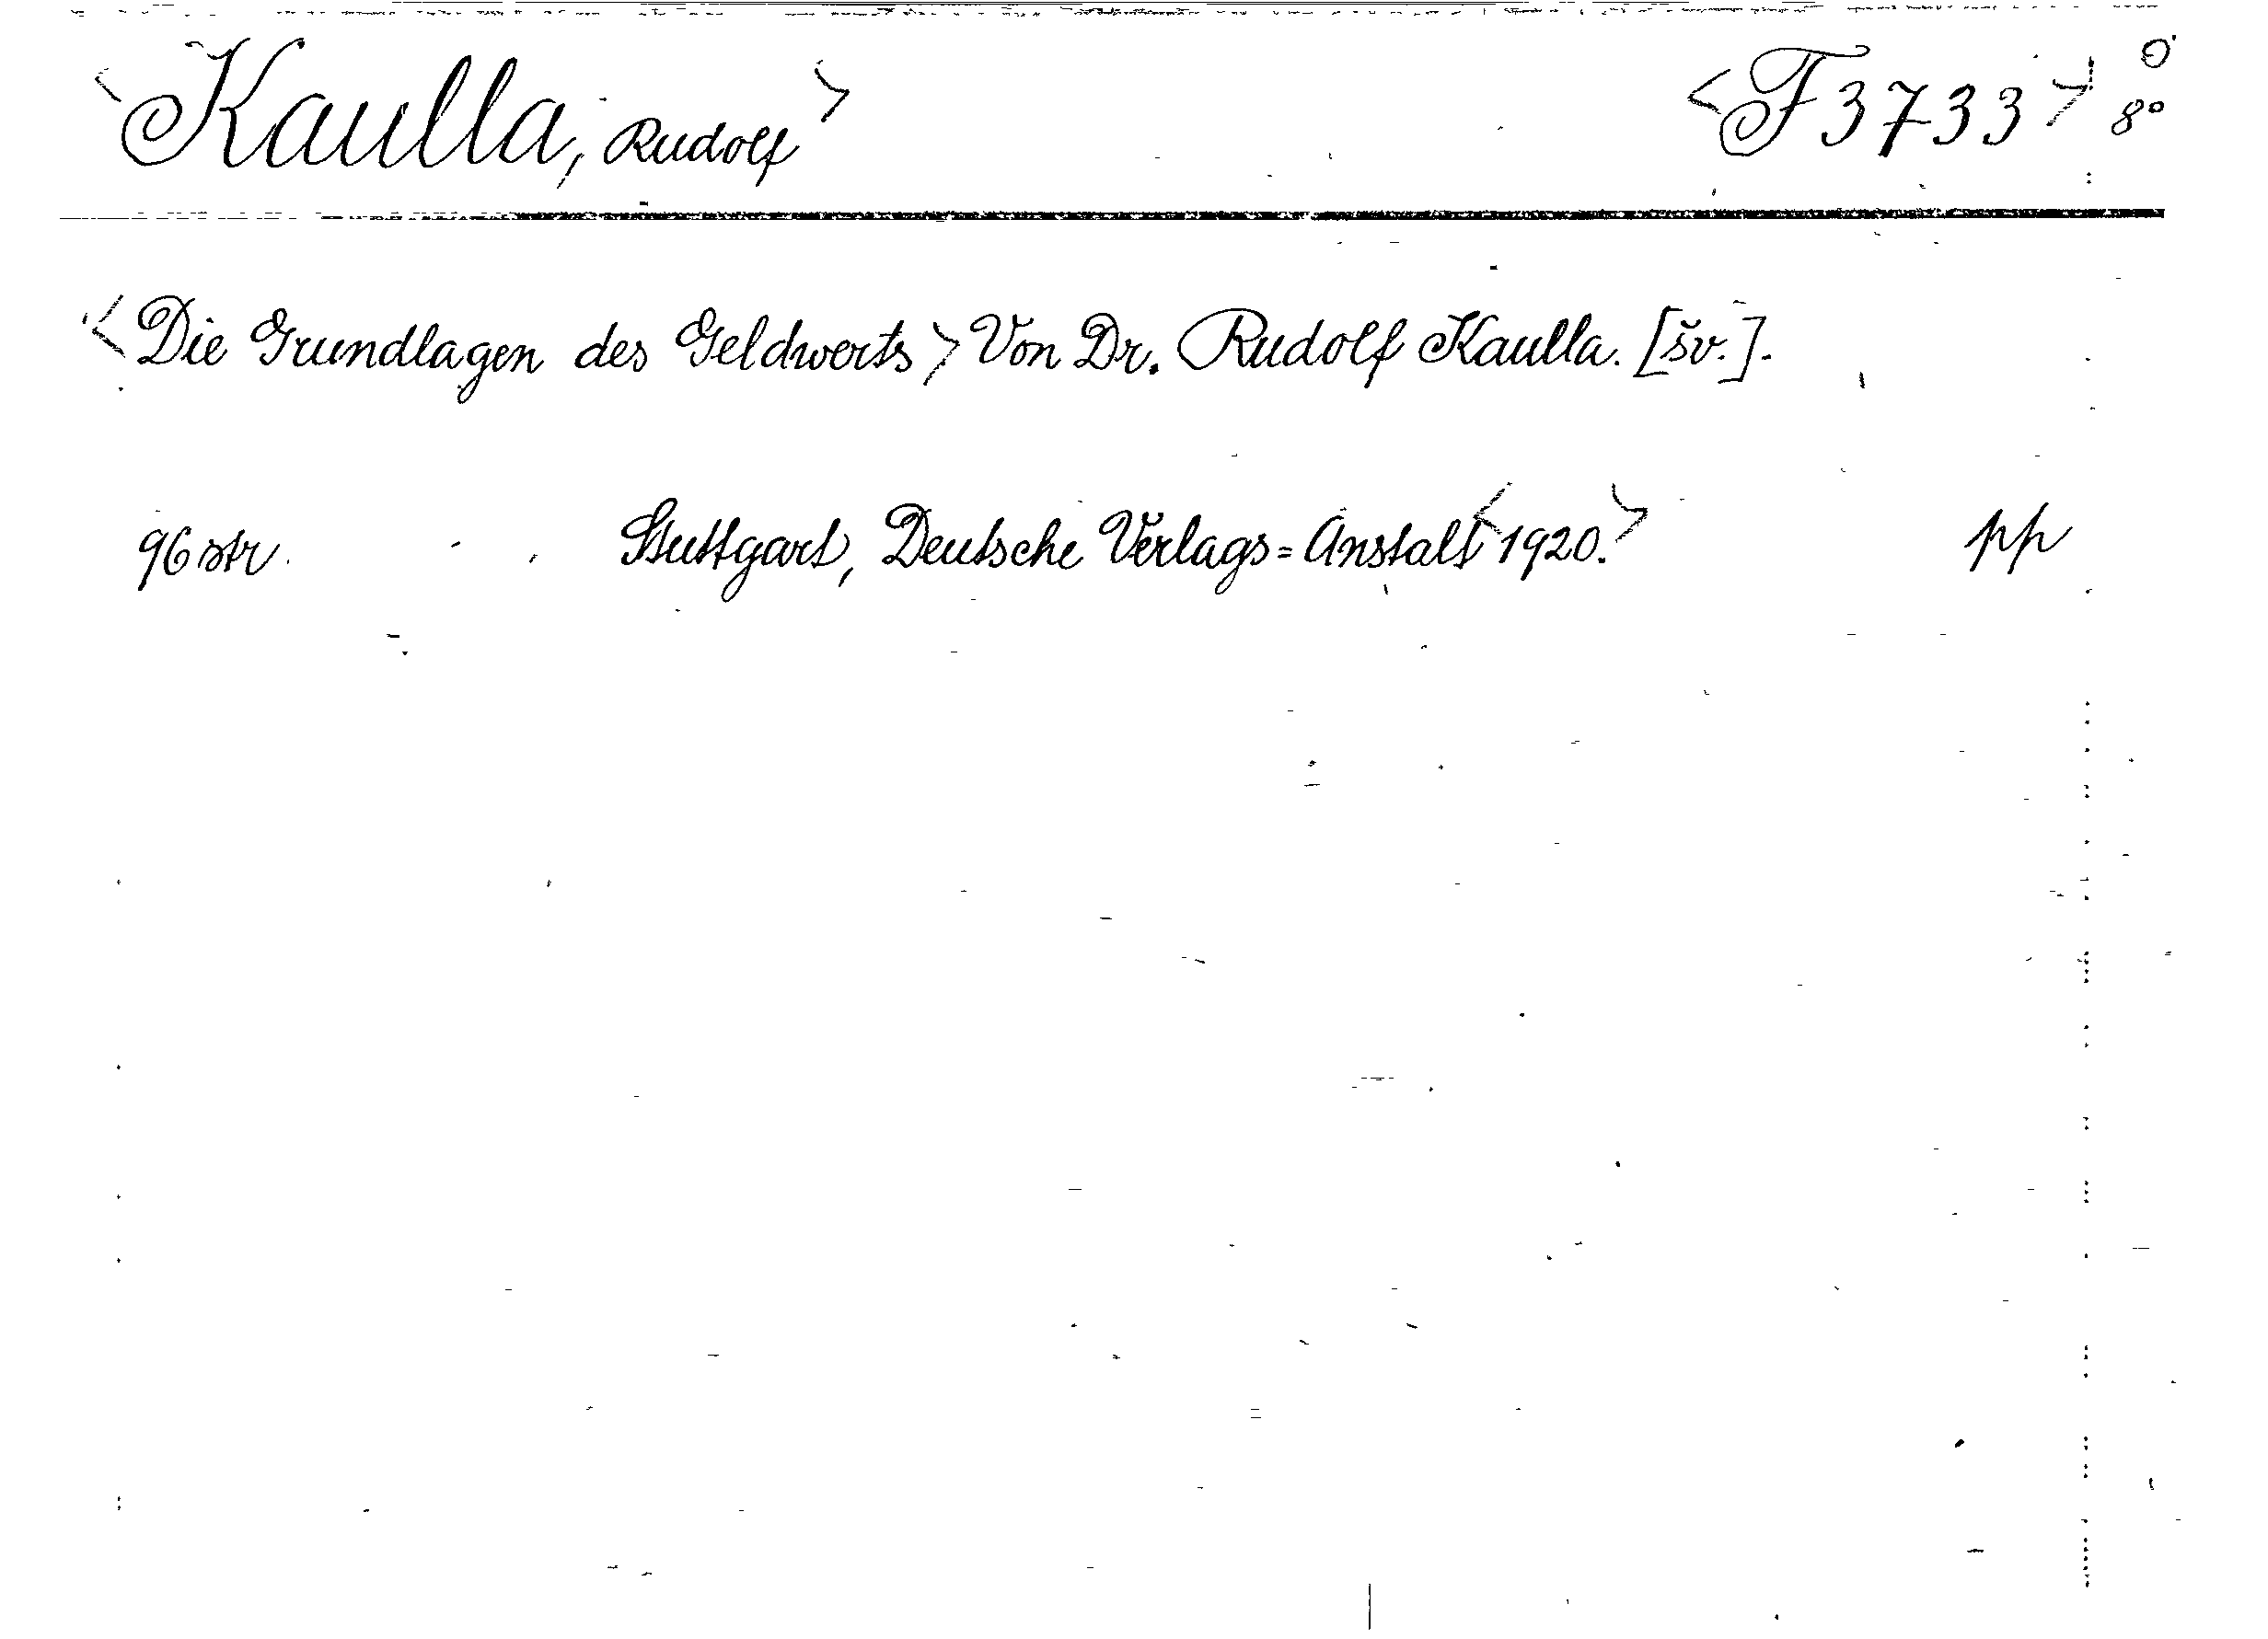 <Kaulla, Rudolf> <F 3733> 8°
<Die Grundlagen des Geldwerts> Von Dr. Rudolf Kaulla. [šv.].
96 str. Stuttgart, Deutsche Verlags=Anstalt <1920.> pp